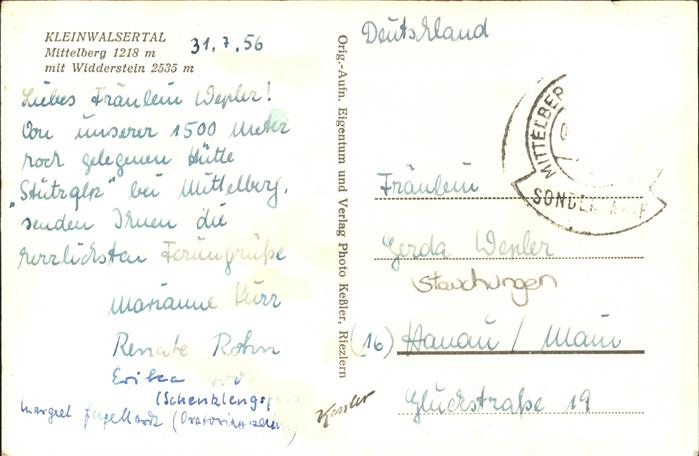 KLEINWALSERTAL
Mittelberg 1218 m
mit Widderstein 2535 m
31.7.56
Liebes Fräulein Wepler!
Von unserer 1500 Meter
hoch gelegenen Hütte
„Stutzalp" bei Mittelberg,
senden Ihnen die
herzlichsten Feriengrüße
Marianne Kurr
Renate Rohn
Erika
(Schenklengsf
Margret Engelhardt
Kessler
Orig.-Aufn. Eigentum und Verlag Photo Keßler, Riezlern
Deutschland
MITTELBER
SONDE
Fräulein
Gerda Wepler
Stauchungen
(16) Hanau / Main
Glückstraße 19